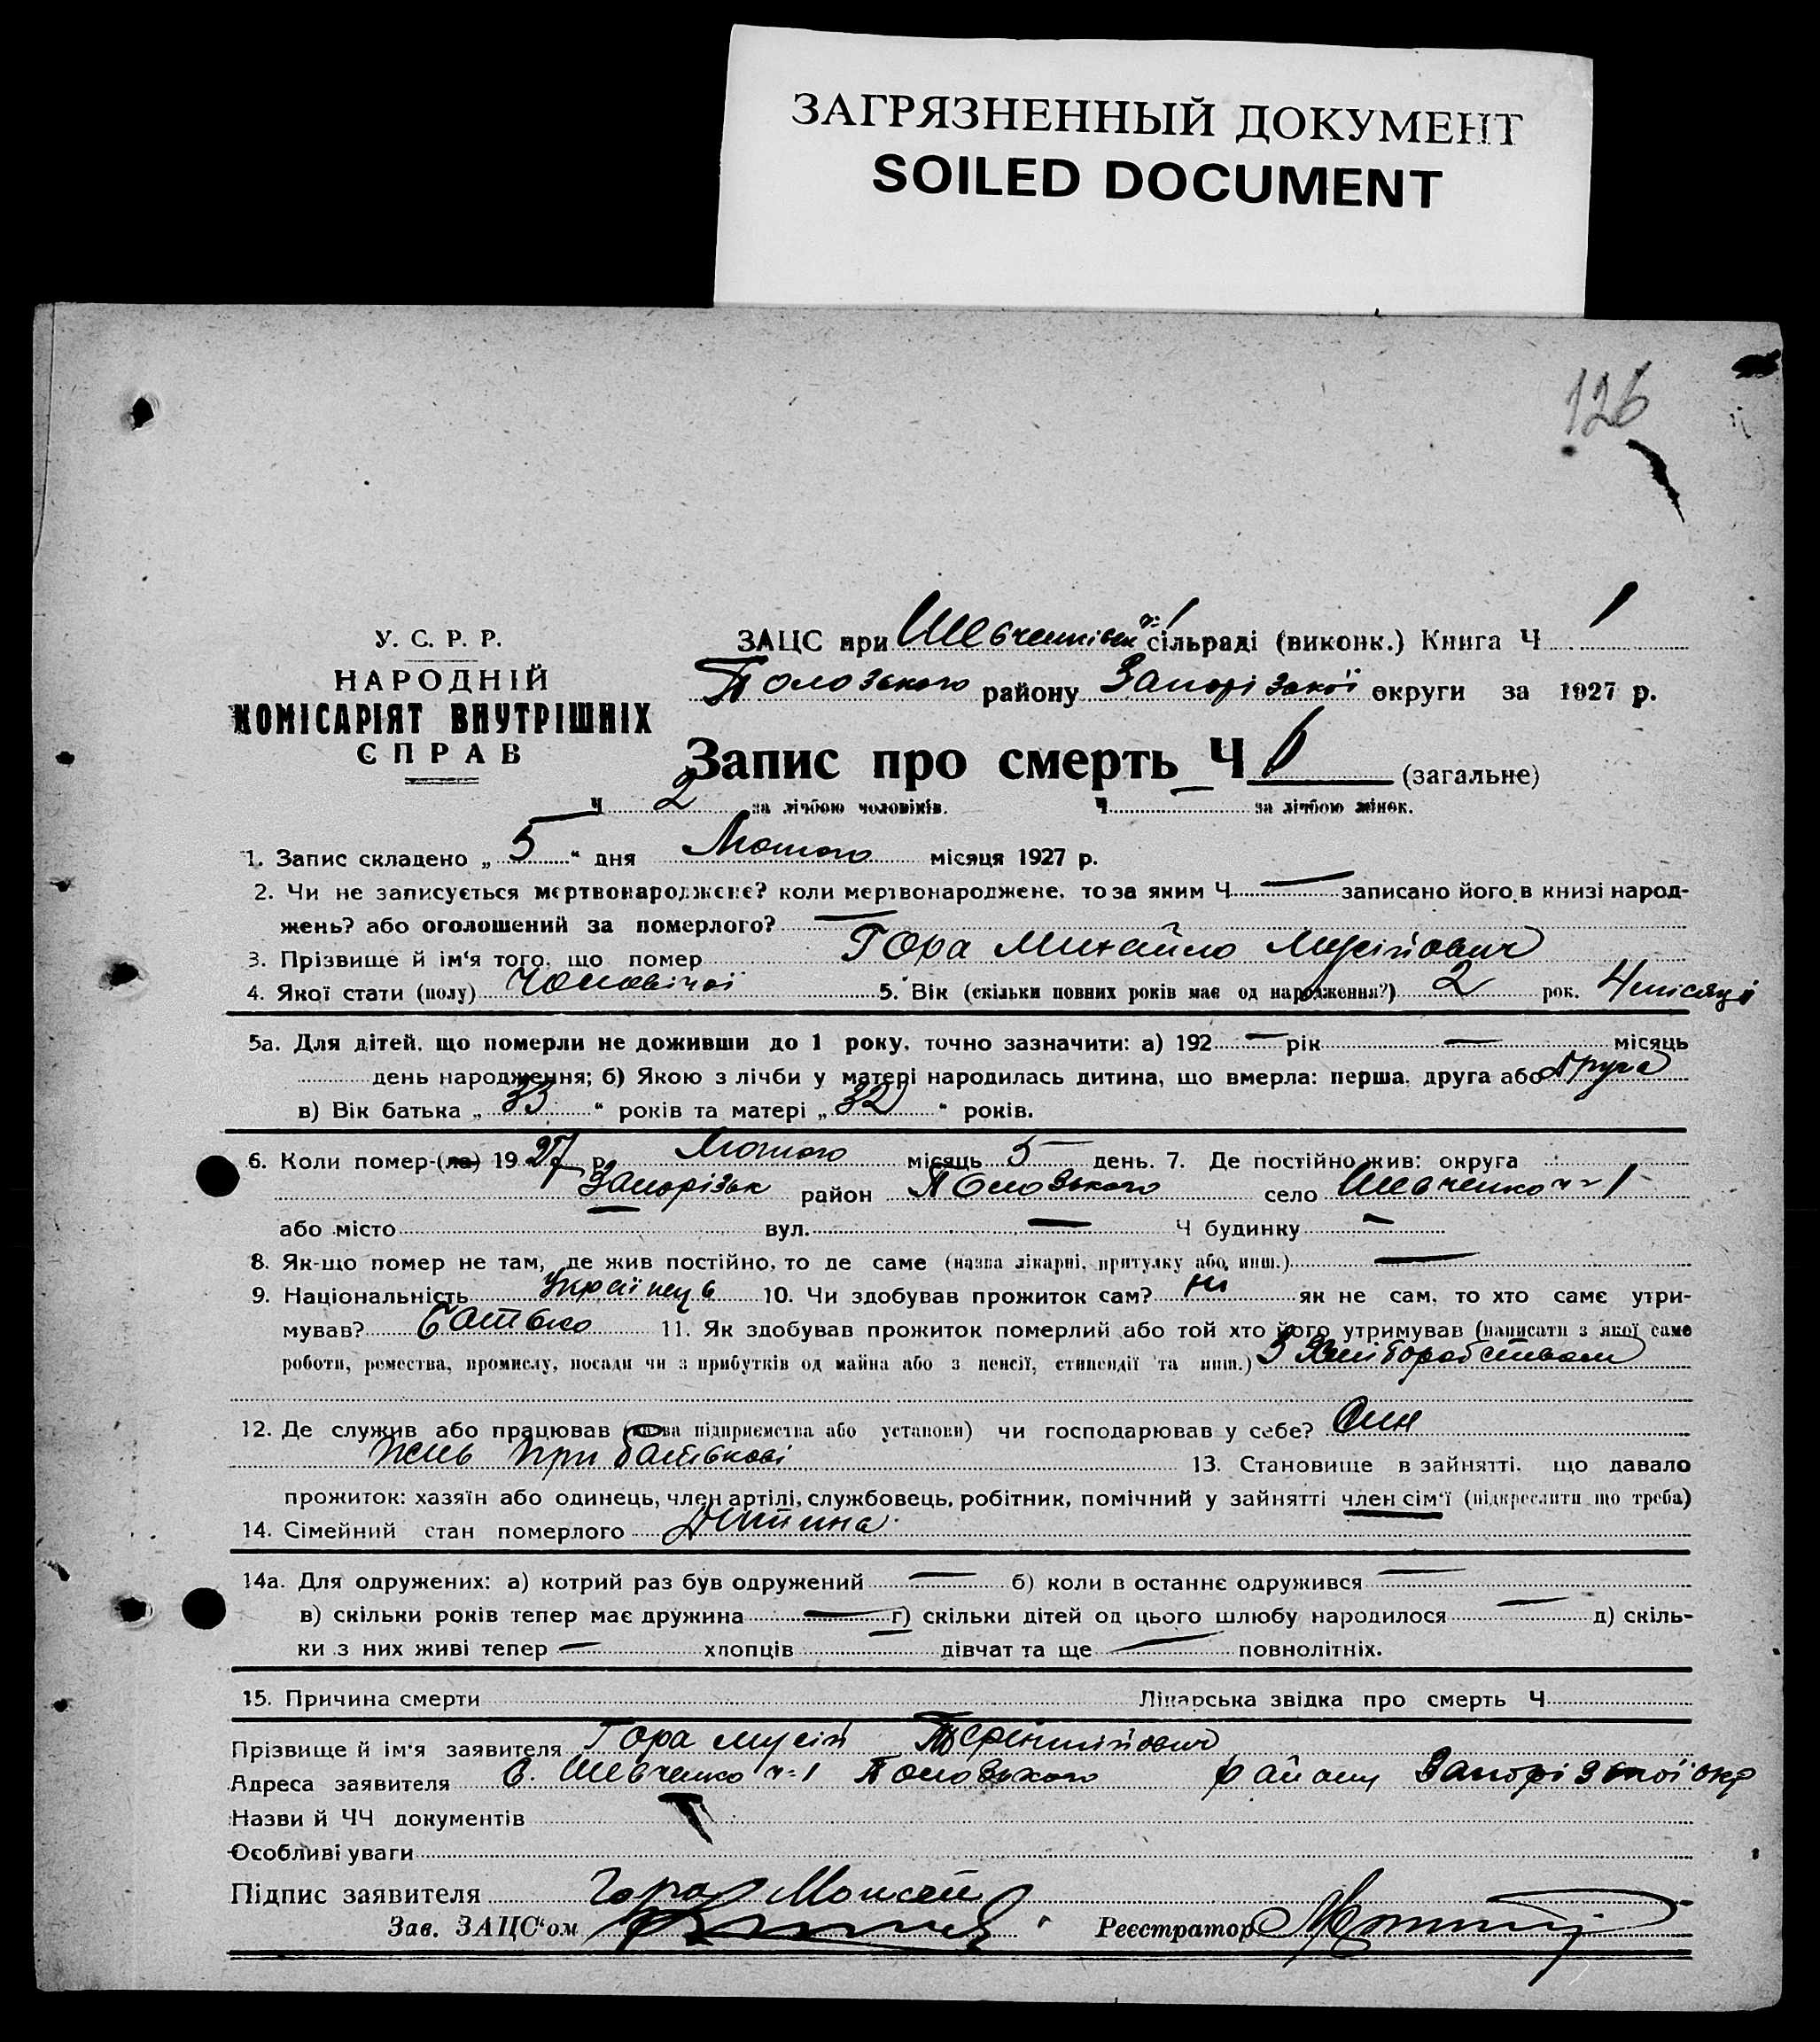 ЗАГРЯЗНЕННЫЙ ДОКУМЕНТ
SOILED DOCUMENT
126
У. С. Р. Р.
НАРОДНІЙ
КОМІСАРІЯТ ВНУТРІШНІХ
СПРАВ
ЗАЦС при Шевченківськ ч-1 сільраді (виконк.) Книга Ч 1
Пологського району Запорізької округи за 1927 р.
Запис про смерть Ч 6 (загальне)
Ч 2 за лічбою чоловіків. Ч — за лічбою жінок.
1. Запис складено „ 5 “ дня Лютого місяця 1927 р.
2. Чи не записується мертвонароджене? коли мертвонароджене, то за яким Ч — записано його в книзі народ-
жень? або оголошений за померлого? —
3. Прізвище й ім'я того, що помер Гора Михайло Мусійович
4. Якої стати (полу) Чоловічої 5. Вік (скільки повних років має од народження?) 2 рок. 4 місяці
5а. Для дітей, що померли не доживши до 1 року, точно зазначити: а) 192 — рік — місяць
день народження; б) Якою з лічби у матері народилась дитина, що вмерла: перша, друга або друга
в) Вік батька „ 33 “ років та матері „ 32 “ років.
6. Коли помер-(ла) 1927 р. Лютого місяць 5 день. 7. Де постійно жив: округа
Запорізьк район Пологського село Шевченко ч-1
або місто — вул. — Ч будинку —
8. Як-що помер не там, де жив постійно, то де саме (назва лікарні, притулку або инш.) —
9. Національність Українець 10. Чи здобував прожиток сам? Ні як не сам, то хто саме утри-
мував? Батько 11. Як здобував прожиток померлий або той хто його утримував (написати з якої саме
роботи, ремества, промислу, посади чи з прибутків од майна або з пенсії, стипендії та инш.) З Хліборобством
12. Де служив або працював (назва підприємства або установи) чи господарював у себе?
при батькові 13. Становище в зайнятті, що давало
прожиток: хазяїн або одинець, член артілі, службовець, робітник, помічний у зайнятті член сім'ї (підкреслити що треба)
14. Сімейний стан померлого Дитина
14а. Для одружених: а) котрий раз був одружений — б) коли в останнє одружився —
в) скільки років тепер має дружина — г) скільки дітей од цього шлюбу народилося — д) скіль-
ки з них живі тепер — хлопців — дівчат та ще — повнолітніх.
15. Причина смерти Лікарська звідка про смерть Ч
Прізвище й ім'я заявителя Гора Мусій
Адреса заявителя с. Шевченко ч-1 Пологського району Запорізської окр
Назви й ЧЧ документів
Особливі уваги
Підпис заявителя Гора Моисей
Зав. ЗАЦС'ом
Реєстратор